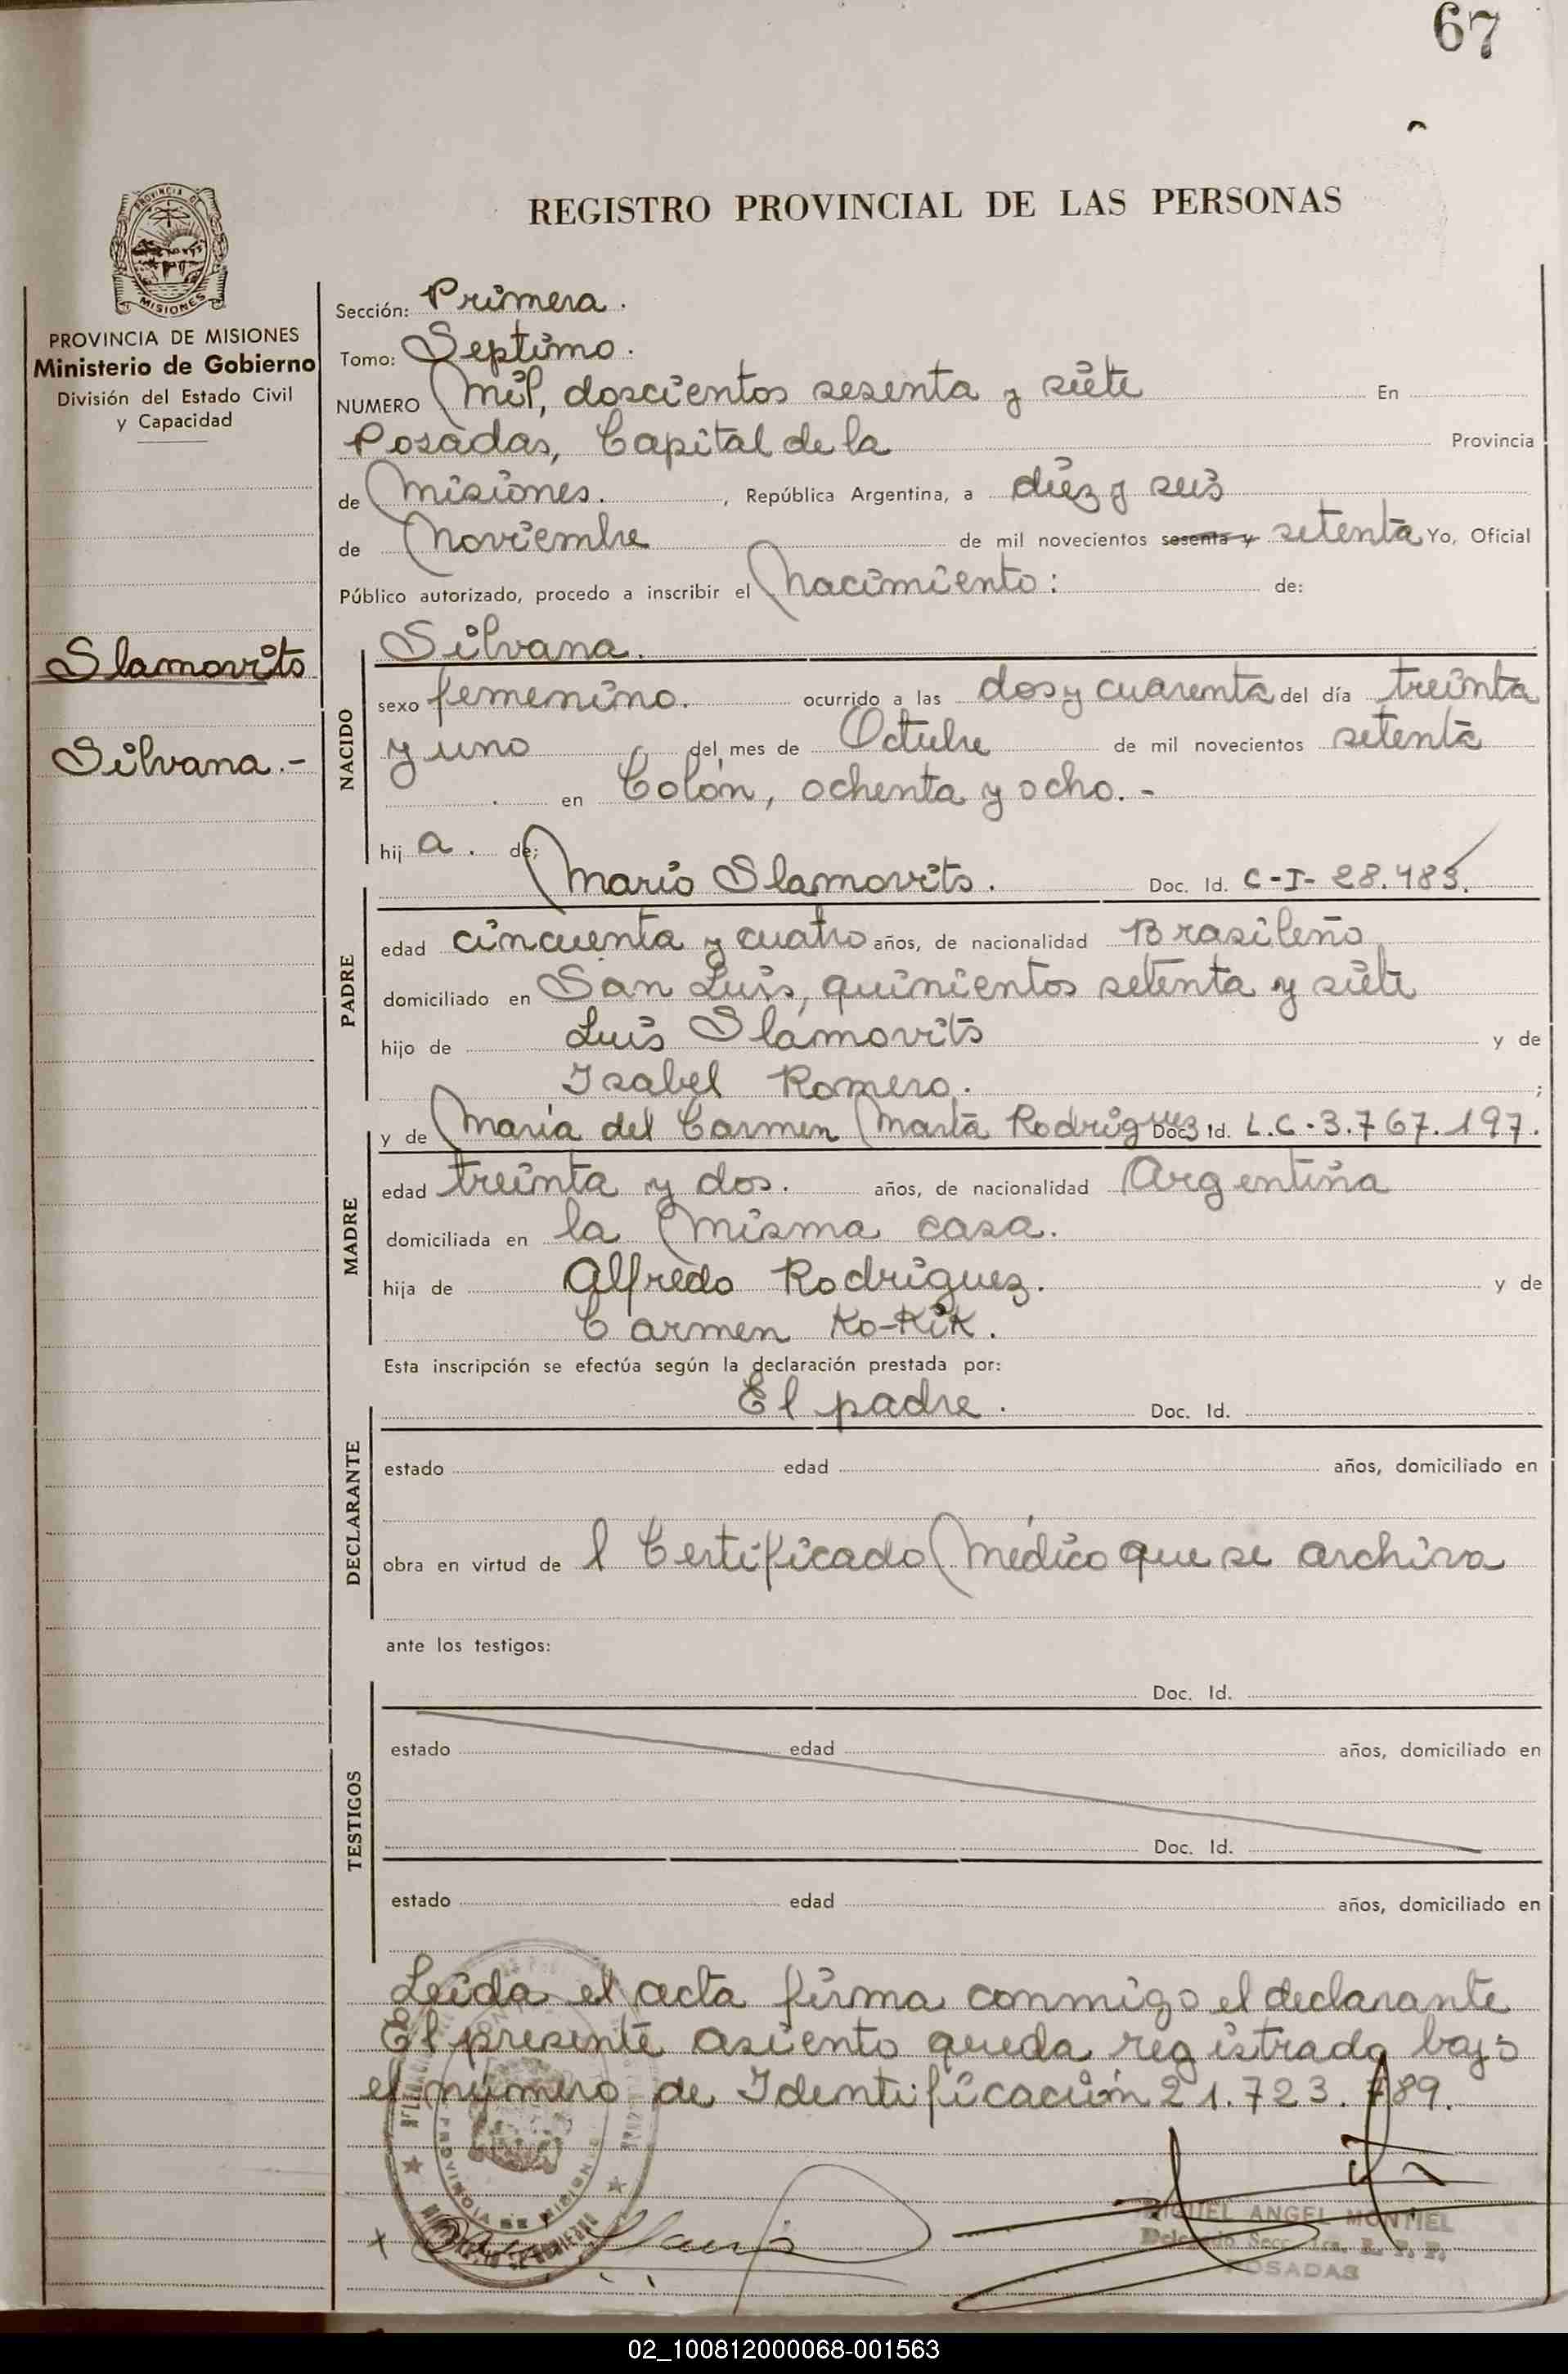 67
REGISTRO PROVINCIAL DE LAS PERSONAS
PROVINCIA DE MISIONES
Ministerio de Gobierno
División del Estado Civil
y Capacidad
Slamovits
Silvana.-
Sección: Primera.
Tomo: Septimo.
NUMERO Mil, doscientos sesenta y siete En
Posadas, Capital de la Provincia
de Misiones. , República Argentina, a diez y seis
de Noviembre de mil novecientos sesenta y setenta Yo, Oficial
Público autorizado, procedo a inscribir el Nacimiento: de:
NACIDO
Silvana.
sexo femenino. ocurrido a las dos y cuarenta del día treinta
y uno del mes de Octubre de mil novecientos setenta
en Colón, ochenta y ocho.-
hij a. de;
PADRE
Mario Slamovits. Doc. Id. C-I- 28.485.
edad cincuenta y cuatro años, de nacionalidad Brasileño
domiciliado en San Luis, quinientos setenta y siete
hijo de Luis Slamovits y de
Isabel Romero. ;
MADRE
y de María del Carmen Marta Rodriguez Doc. Id. L.C.-3.767.197.
edad treinta y dos. años, de nacionalidad Argentina
domiciliada en la Misma casa.
hija de Alfredo Rodriguez. y de
Carmen Ko-Kik.
Esta inscripción se efectúa según la declaración prestada por:
DECLARANTE
El padre. Doc. Id.
estado edad años, domiciliado en
obra en virtud de l Certificado Médico que se archiva
ante los testigos:
TESTIGOS
Doc. Id.
estado edad años, domiciliado en
Doc. Id.
estado edad años, domiciliado en
Leida el acta firma conmigo el declarante
El presente asiento queda registrado bajo
el número de Identificación 21.723.789.
PROVINCIA DE MISIONES
MIGUEL ANGEL MONTIEL
POSADAS
02_100812000068-001563